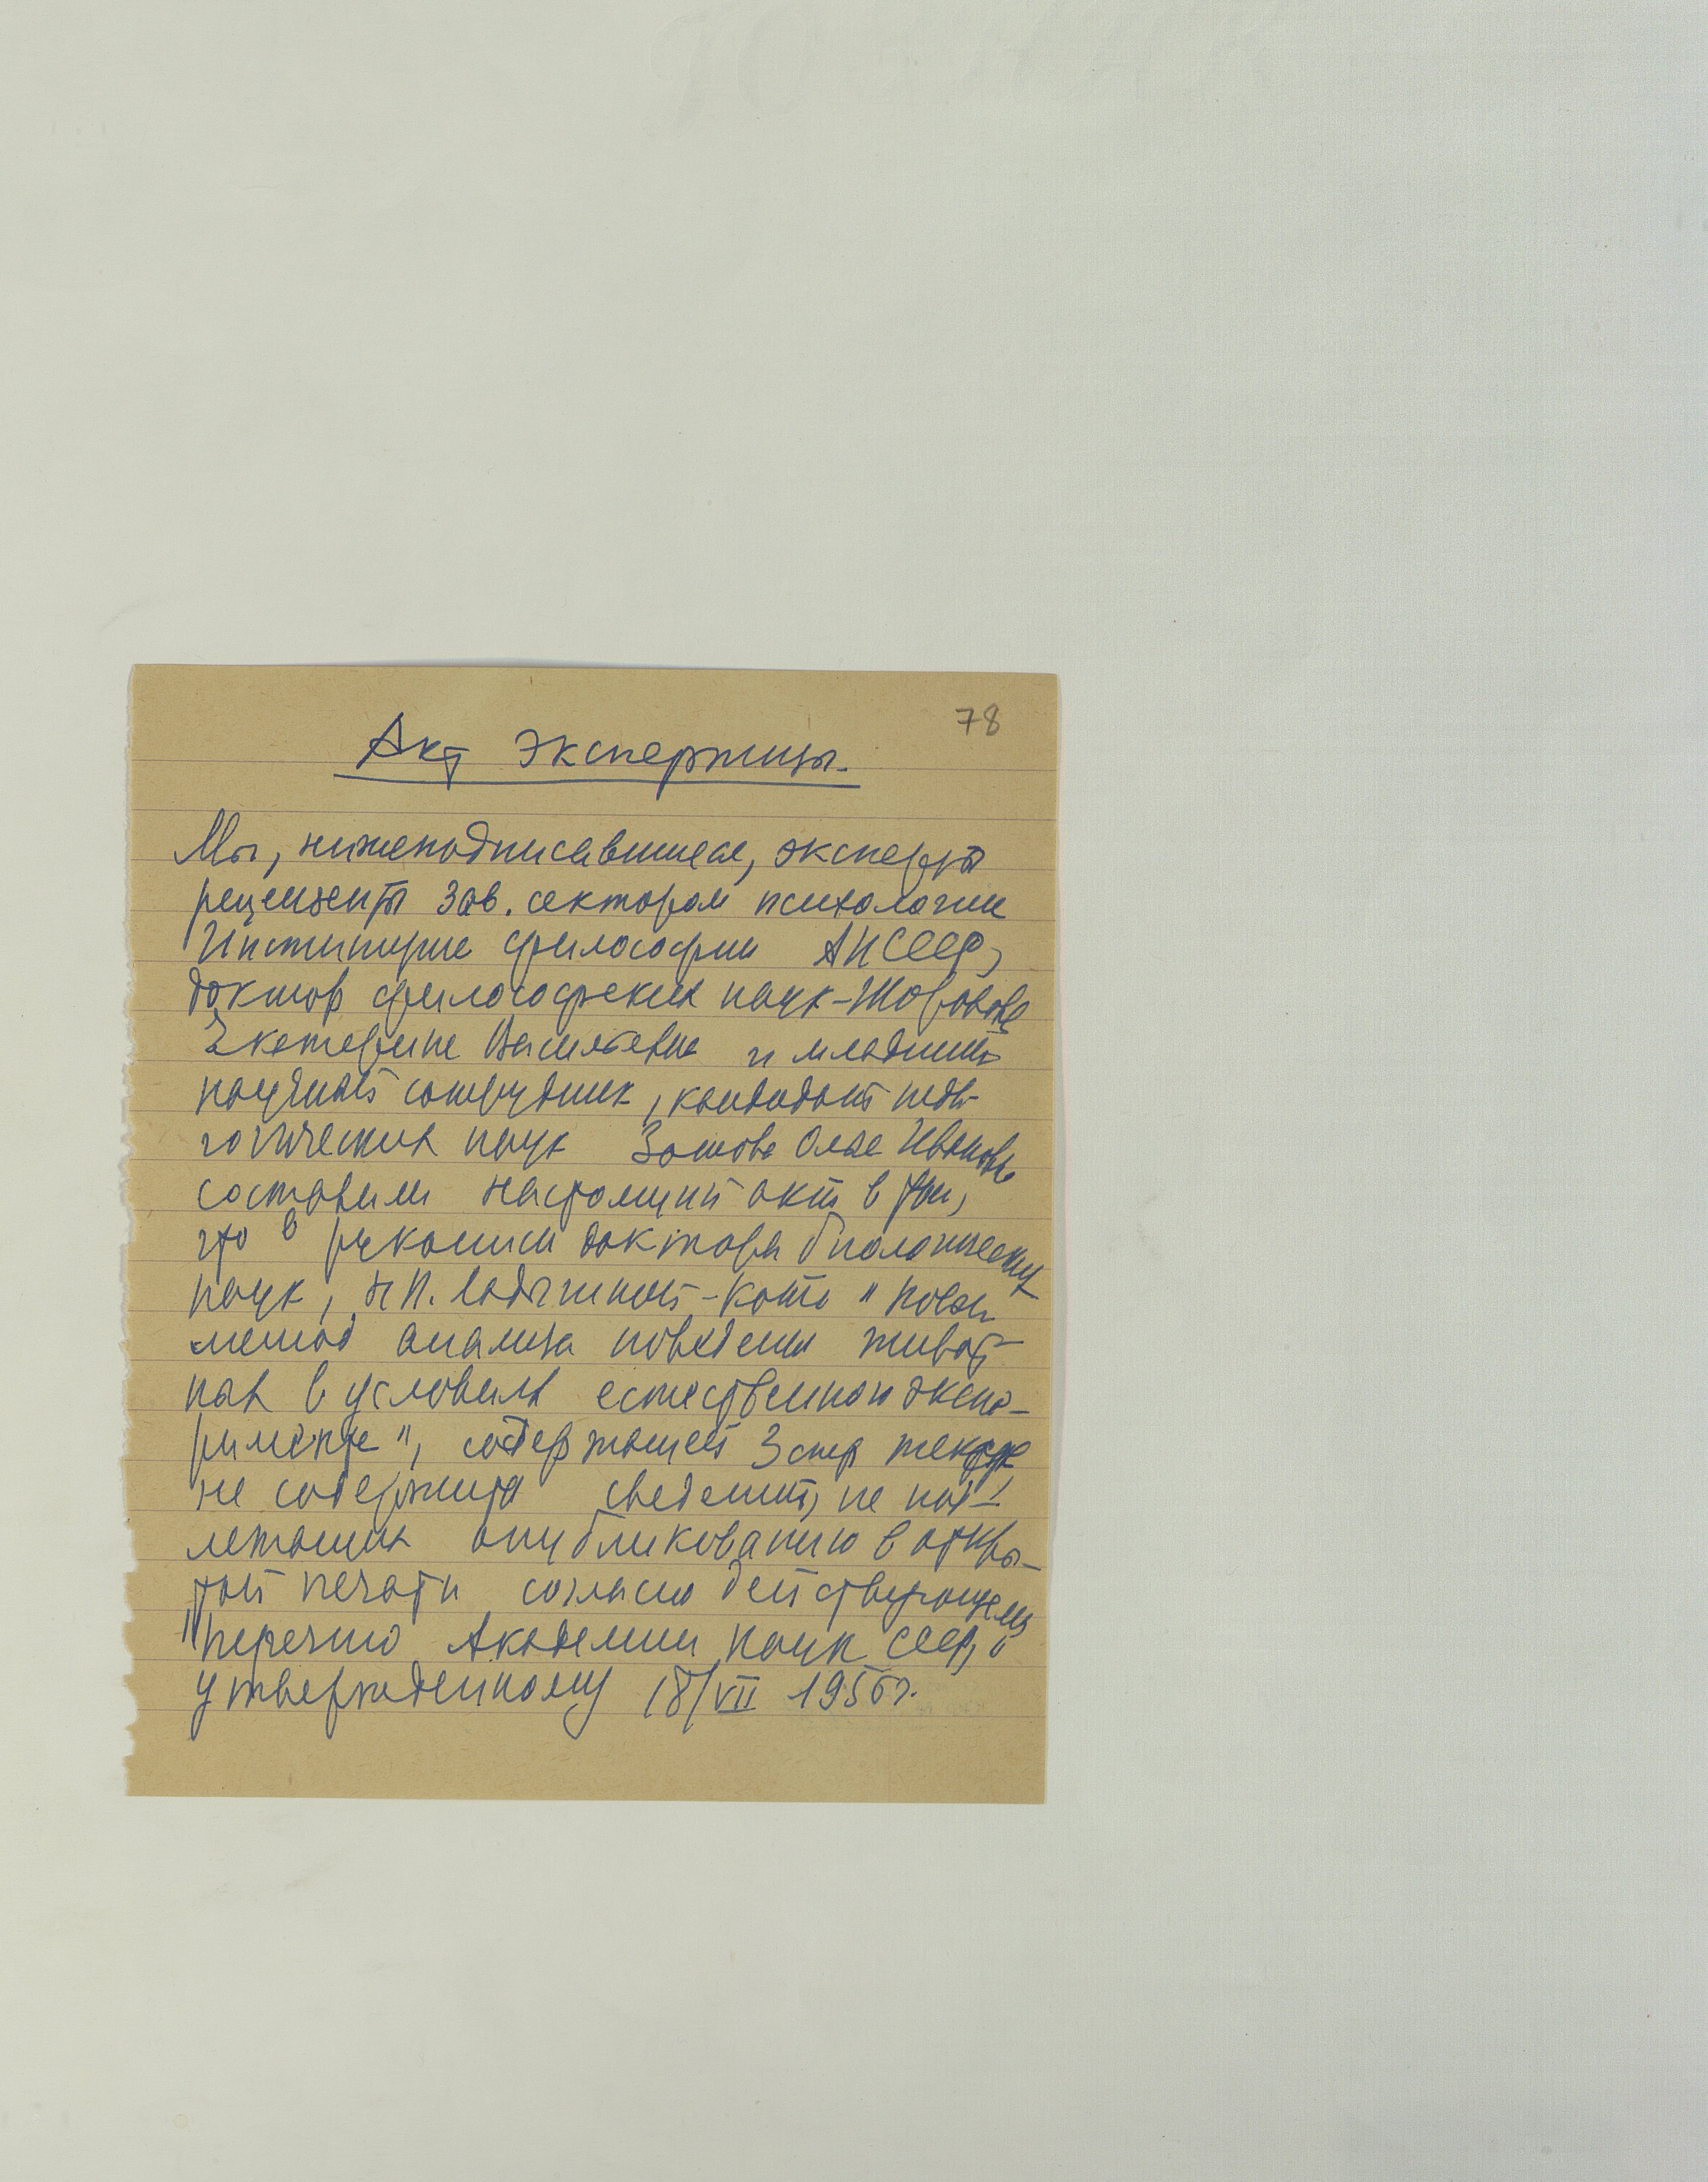 78
Акт экспертизы.
Мы, нижеподписавшиеся, эксперты
рецензенты зав. сектором психологии
Института философии АН СССР,
доктор философских наук - Шорохова
Екатерина Васильевна и младший
научный сотрудник, кандидат педа-
гогических наук Зотова Ольга Ивановна
составили настоящий акт в том,
что в рукописи доктора биологических
наук, Н Н. Ладыгиной-Котс "Новый
метод анализа поведения живот-
ных в условиях естественного экспе-
римента", содержащей 3 стр текста
не содержится сведений, не под-
лежащих опубликованию в откры-
той печати согласно действующему
Перечню Академии наук СССР,
утвержденному 18/VII 1956 г.